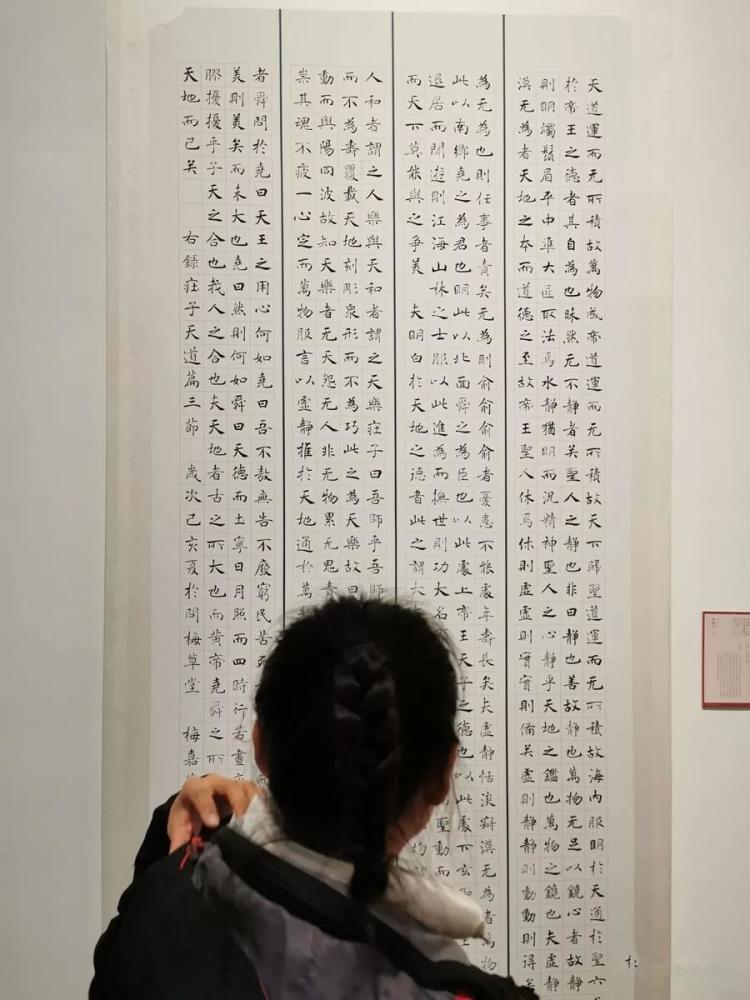 天道運而无所積故萬物成帝道運而无所積故天下歸聖道運而无所積故海内服明於天通於聖六
於帝王之德者其自為也昧然无不静者矣聖人之静也非曰静也善故静也萬物无足以鐃心者故静
則明燭鬚眉平中準大匠取法焉水静猶明而況精神聖人之心静乎天地之鑑也萬物之鏡也夫虛静
漠无為者天地之本而道德之至故帝王聖人休焉休則虛虛則實實則備矣虛則静静則動動則得矣
為无為也則任事者責矣无為則俞俞俞俞者憂患不能處年壽長矣夫虛静恬淡寂漠无為者萬物
此以南鄉堯之為君也明此以北面舜之為臣也以此處上帝王天子之德也以此處下玄聖
退居而閒遊則江海山林之士服以此進為而撫世則功大名 聖動而
而天下莫能與之爭美 夫明白於天地之德者此之謂大 均
人和者謂之人樂與天和者謂之天樂莊子曰吾師乎吾師
而不為壽覆載天地刻彫衆形而不為巧此之為天樂故曰
動而與陽同波故知天樂者无天怨无人非无物累无鬼責
祟其魂不疲一心定而萬物服言以虛静推於天地通於萬
者舜問於堯曰天王之用心何如堯曰吾不敖無告不廢窮民苦
美則美矣而未大也堯曰然則何如舜曰天德而土寧日月照而四時行若晝
膠擾擾乎子天之合也我人之合也夫天地者古之所大也而黃帝堯舜之所
天地而已矣 右録莊子天道篇三節 歲次己亥夏於問梅草堂 梅嘉